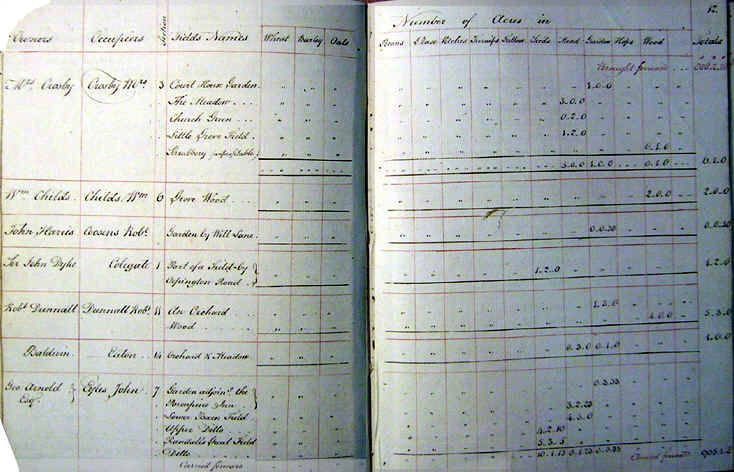 Number of Acres in 12.
Owners Occupiers Section Fields Names Wheat Barley Oats Beans Pease Vetches Turnips Fallow Seeds Mead Garden Hops Wood Totals
Brought forward
Mrs Crosby Crosby Mrs 3 Court House Garden 1.0.0
The Meadow 3.0.0
Church Green 0.2.0
Little Grove Field 1.2.0
Shrubbery 0.1.0
5.0.0 1.0.0 0.1.0 6.1.0
Wm Childs Childs Wm 6 Grove Wood 2.0.0 2.0.0
John Harris Cosens Robt Garden by Well Lane 0.0.20 0.0.20
Sir John Dyke Colegate 1 Part of a Field by
Orpington Road 1.2.0 1.2.0
Robt Dunnall Dunnall Robt 11 An Orchard 1.3.0
Wood 4.0.0 5.3.0
Baldwin Eaton 14 Orchard & Meadow 0.3.0 0.1.0 1.0.0
Geo Arnold Esq. John 7 Garden adjoing the 0.3.23
Porcupine Inn 3.2.23
Lower Barn Field 4.3.0
Upper Ditto 4.2.10
Field 5.3.5
Ditto
Carried forward Carried forward